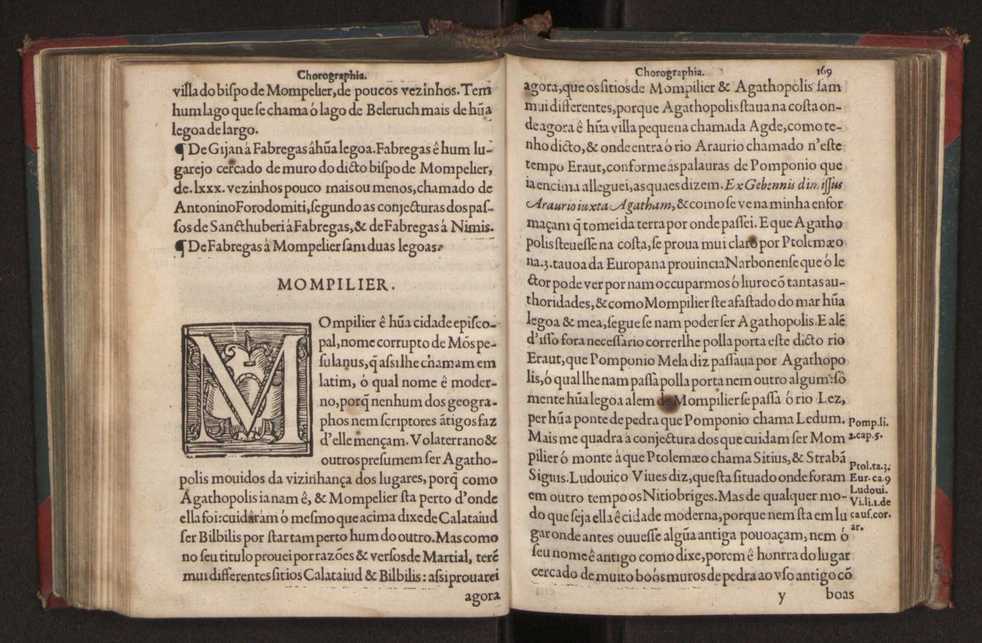 Chorographia.
villa do bispo de Mompelier, de poucos vezinhos. Tem
hum lago que se chama ó lago de Beleruch mais de hũa
legoa de largo.
¶ De Gijan à Fabregas á hũa legoa. Fabregas ê hum lu-
garejo cercado de muro do dicto bispo de Mompelier,
de. lxxx. vezinhos pouco mais ou menos, chamado de
Antonino Forodomiti, segundo as conjecturas dos pas-
sos de Sancthuberi à Fabregas, & de Fabregas à Nimis.
¶ De Fabregas à Mompelier sam duas legoas.
MOMPILIER.
MOmpilier ê hũa cidade episco-
pal, nome corrupto de Mõs pe-
sulanus, q̃ assi lhe chamam em
latim, ó qual nome ê moder-
no, porq̃ nenhum dos geogra-
phos nem scriptores ãtigos faz
d'elle mençam. Volaterrano &
outros presumem ser Agatho-
polis mouidos da vizinhança dos lugares, porq̃ como
Agathopolis ia nam ê, & Mompilier sta perto d'onde
ella foi: cuidaram ó mesmo que acima dixe de Calataiud
ser Bilbilis por star tam perto hum do outro. Mas como
no seu titulo prouei por razões & versos de Martial, terẽ
mui differentes sitios Calataiud & Bilbilis: assi prouarei
agora
Chorographia. 169
agora, que os sitios de Mompilier & Agathopolis sam
mui differentes, porque Agathopolis staua na costa on-
de agora ê hũa villa pequena chamada Agde, como te-
nho dicto, & onde entra ó rio Araurio chamado n'este
tempo Eraut, conforme ás palauras de Pomponio que
ia encima alleguei, as quaes dizem. Ex Gebennis dimissus
Araurio iuxta Agatham, & como se ve na minha enfor
maçam q̃ tomei da terra por onde passei. E que Agatho
polis steuesse na costa, se proua mui claro por Ptolemæo
na. 3. tauoa da Europa na prouincia Narbonense que ó le
ctor pode ver por nam occuparmos ó liuro cõ tantas au-
thoridades, & como Mompilier ste afastado do mar hũa
legoa & mea, segue se nam poder ser Agathopolis. E alẽ
d'isso fora necessario correrlhe polla porta este dicto rio
Eraut, que Pomponio Mela diz passaua por Agathopo
lis, ó qual lhe nam passa polla porta nem outro algum: sò
mente hũa legoa alem de Mompilier se passa ó rio Lez,
per hũa ponte de pedra que Pomponio chama Ledum.
Mais me quadra à conjectura dos que cuidam ser Mom
pilier ó monte à que Ptolemæo chama Sitius, & Strabã
Sigius. Ludouico Viues diz, que sta situado onde foram
em outro tempo os Nitiobriges. Mas de qualquer mo-
do que seja ella ê cidade moderna, porque nem sta em lu
gar onde antes ouuesse algũa antiga pouoaçam, nem ó
seu nome ê antigo como dixe, porem ê honrra do lugar
cercado de muito boõs muros de pedra ao vso antigo cõ
y boas
Pomp. li.
2. cap. 5.
Ptol. ta. 3.
Eur. ca. 9
Ludoui.
Vi. li. 1. de
caus. cor.
ar.